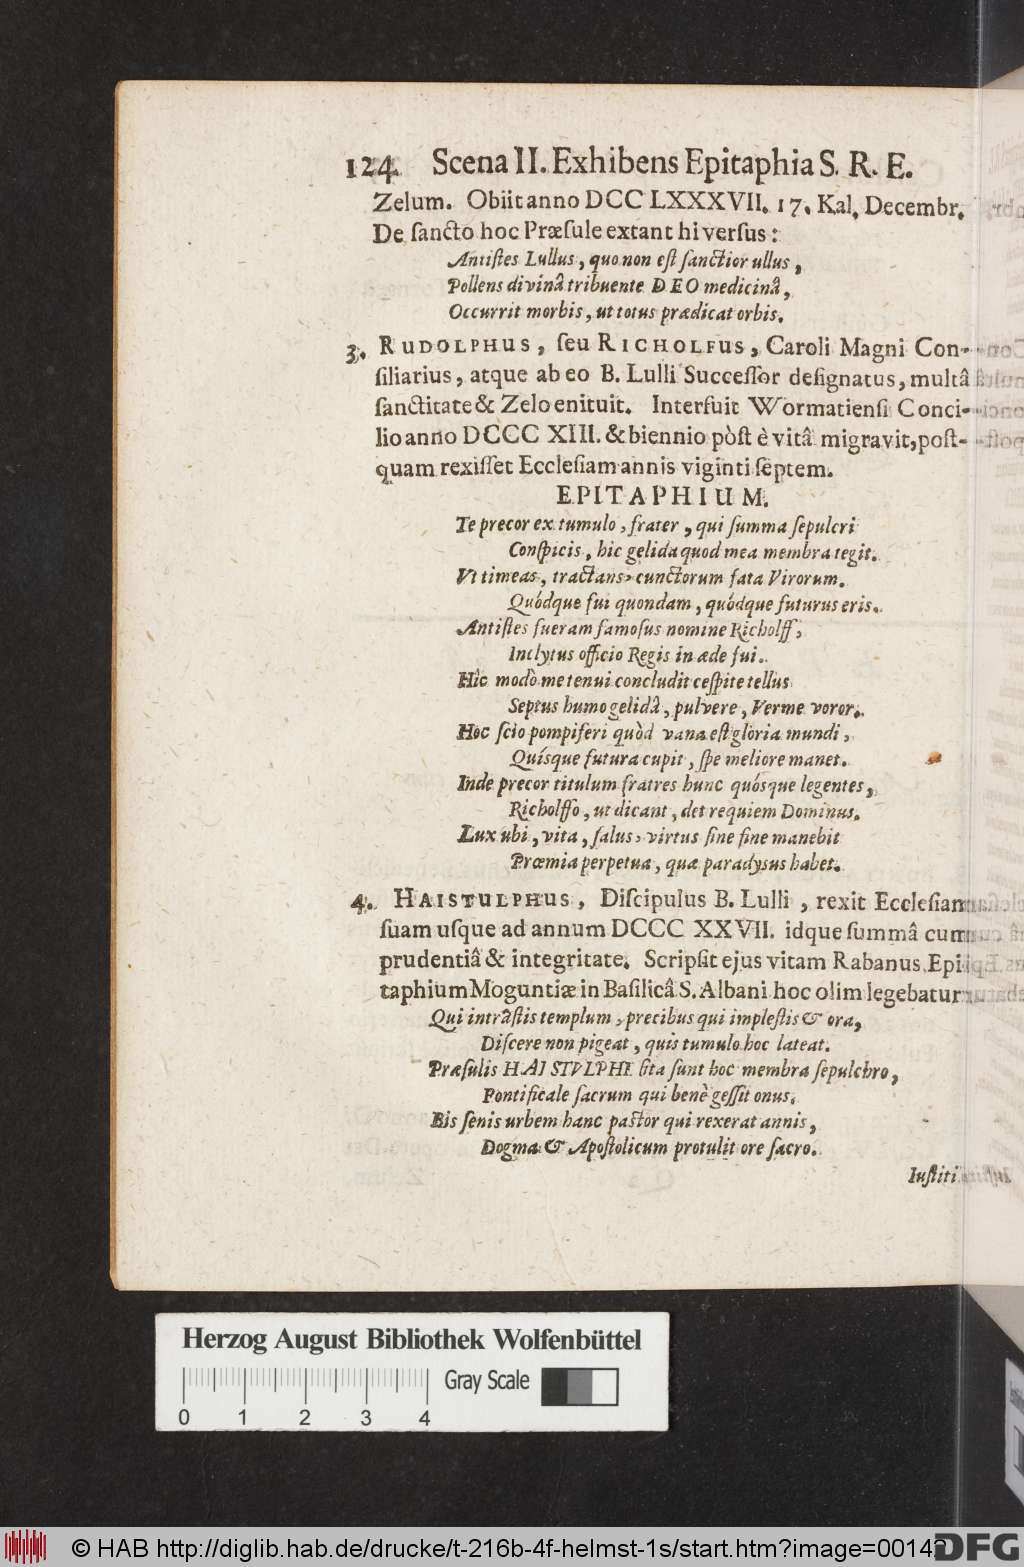 124. Scena II. Exhibens Epitaphia S. R. E.
Zelum. Obiit anno DCC LXXXVII. 17. Kal. Decembr.
De ſancto hoc Præſule extant hi verſus:
Antiſtes Lullus, quo non eſt ſanctior ullus,
Pollens divinâ tribuente DEO medicinâ,
Occurrit morbis, ut totus prædicat orbis.
3. RUDOLPHUS, ſeu RICHOLFUS, Caroli Magni Con-
ſiliarius, atque ab eo B. Lulli Succeſſor deſignatus, multâ
ſanctitate & Zelo enituit. Interfuit Wormatienſi Conci-
lio anno DCCC XIII. & biennio pòſt è vitâ migravit, poſt-
quam rexiſſet Eccleſiam annis viginti ſeptem.
EPITAPHIUM.
Te precor ex tumulo, frater, qui ſumma ſepulcri
Conſpicis, hic gelida quod mea membra tegit.
Vt timeas, tractans, cunctorum fata Virorum.
Quódque fui quondam, quódque futurus eris.
Antiſtes fueram famoſus nomine Richolff,
Inclytus officio Regis in æde fui.
Hîc modò me tenui concludit ceſpite tellus
Septus humo gelidâ, pulvere, Verme voror.
Hoc ſcio pompiferi quòd vana eſt gloria mundi,
Quíſque futura cupit, ſpe meliore manet.
Inde precor titulum fratres hunc quóſque legentes,
Richolffo, ut dicant, det requiem Dominus.
Lux ubi, vita, ſalus, virtus ſine fine manebit
Præmia perpetua, quæ paradyſus habet.
4. HAISTULPHUS, Diſcipulus B. Lulli, rexit Eccleſiam
ſuam uſque ad annum DCCC XXVII. idque ſummâ cum
prudentiâ & integritate. Scripſit ejus vitam Rabanus. Epi-
taphium Moguntiæ in Baſilicâ S. Albani hoc olim legebatur
Qui intrâſtis templum, precibus qui impleſtis & ora,
Diſcere non pigeat, quis tumulo hoc lateat.
Præſulis HAISTVLPHI ſita ſunt hoc membra ſepulchro,
Pontificale ſacrum qui benè geſſit onus.
Bis ſenis urbem hanc paſtor qui rexerat annis,
Dogma & Apoſtolicum protulit ore ſacro.
Iuſtiti
Herzog August Bibliothek Wolfenbüttel
Gray Scale
0 1 2 3 4
© HAB http://diglib.hab.de/drucke/t-216b-4f-helmst-1s/start.htm?image=00142
DFG